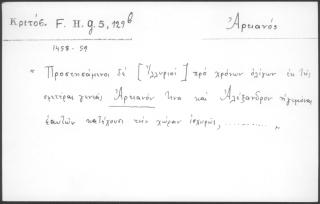 Κριτόβ. F. H. g. 5, 129β Ἀριανός
1458-59
" Προστησάμενοι δὲ [Ἰλλυριοὶ] πρὸ χρόνων ὀλίγων ἐκ τῆς
σφετέρας γενεᾶς Ἀριανόν τινα καὶ Ἀλέξανδρον ἡγεμόνας
ἑαυτῶν κατέχουσι τὴν χώραν ἰσχυρῶς, ........ "